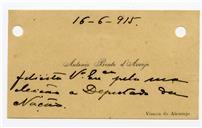 16-6-915.
Antonio Bento d'Araujo
felicita V.ª Ex.ª pela sua
eleição a Deputado da
Nação.
Vianna do Alemtejo